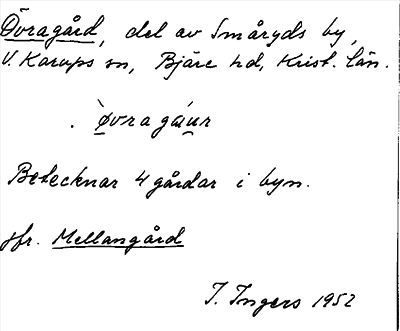 Övragård, del av Småryds by,
V. Karups sn, Bjäre hd, Krist. län.
Betecknar 4 gårdar i byn.
jfr. Mellangård
I. Ingers 1952